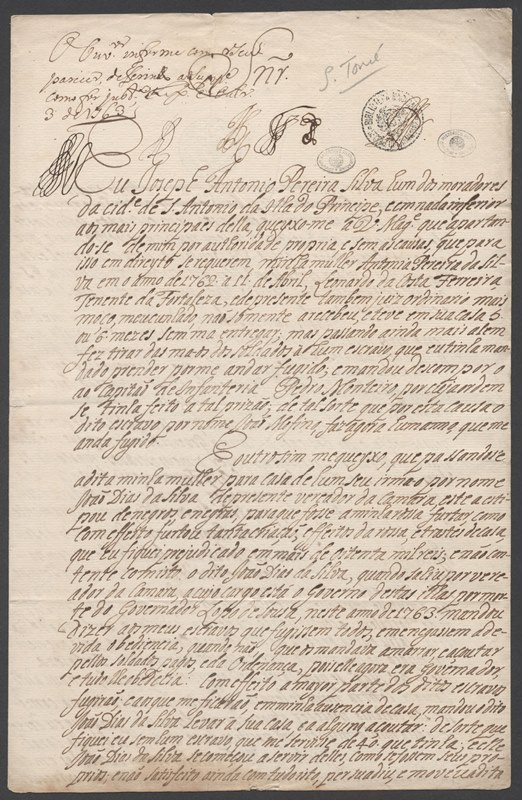 O Ouv.or informe com o seu
parecer,
3 de 1763
S. Tomé
Snr.
Eu Joseph Antonio Pereira Silva hum dos moradores
da cid.e de S. Antonio da Ilha do Principe, e em nada inferior
aos mais principaes della, queyxo-me a V. Mag.e que apartan
do-se de mim por authoridade propria e sem as causas, que para
isso em direyto se requerem, minha mulher Antonia Pereira da Sil
va em o anno de 1762 a 11 de Abril, Leonardo da Costa Ferreira
Tenente da Fortaleza, e de prezente tambem juiz ordinario mais
moço, meu cunhado, não somente a recebeu, e teve em sua caza 5
ou 6 mezes sem ma entregar, mas passando ainda mais alem
fez tirar das maos dos soldados a hum escravo, que eu tinha man
dado prender por me andar fugido, e mandou decompor o
ao Capitaõ de Infanteria Pedro Monteiro, por cuja ordem
se tinha feito a tal prizaõ, de tal sorte que por esta causa o
dito escravo por nome Joaõ faz agora hum anno, que me
anda fugido.
E outro sim me queyxo, que passandose
a dita minha mulher para casa de hum seu irmaõ por nome
Joaõ Dias da Silva de prezente vereador da Camera, este a
de negros, e negras, para que fosse a minha furtar, como
com effeito furtou tantas effeitos da rosa, e trastes de casa,
que eu fiquei prejudicado em mais de oitenta mil reis; e não con
tente com isto, o dito Joaõ Dias da Silva, quando sahiu por vere
ador da Camara, a cujo cargo está o Governo destas Ilhas por mor
te do Governador Lopo de Sousa, neste anno de 1763 mandou
dizer aos meus escravos que fugissem todos, e me negassem a de
vida obediencia, quando não que os mandava amarrar, e açoutar
pellos soldados pagos, e da Ordenança, pois elle agora era Governador,
e tudo lhe obedecia: Com effeito a mayor parte dos ditos escravos
fugiraõ, e aos que me ficaraõ, em minha auzencia de casa, mandou o dito
Joaõ Dias da Silva levar a sua casa, e a alguns açoutar: de sorte que
fiquei eu sem hum escravo, que me servisse de 40. que tinha; e elle
Joaõ Dias da Silva se começou a servir delles, como se fossem seus pro
prios, e não satisfeito ainda com tudo isto, persuadiu, e moveu a dita